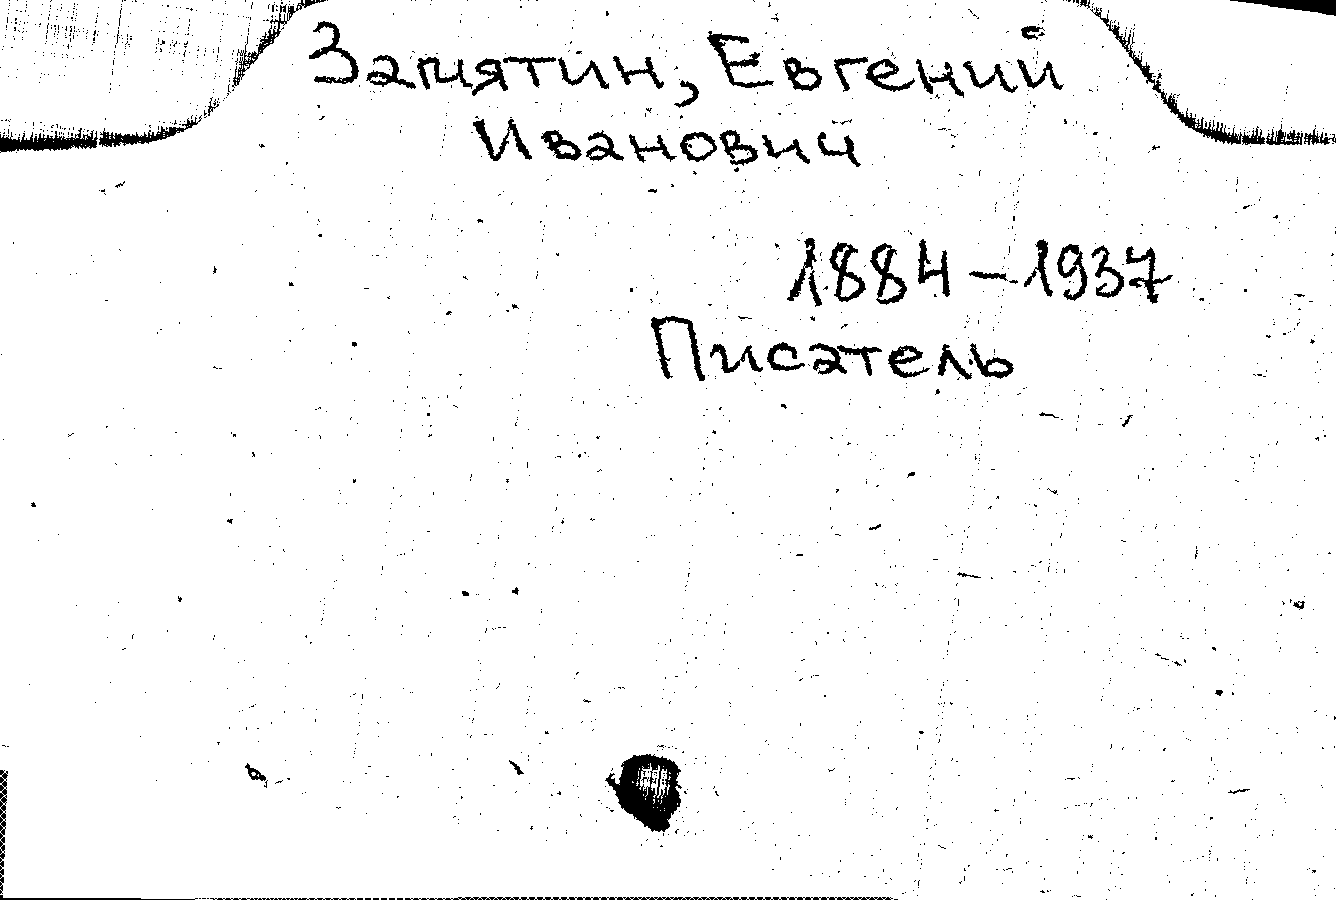 Замятин, Евгений
Иванович
1884 – 1937
Писатель